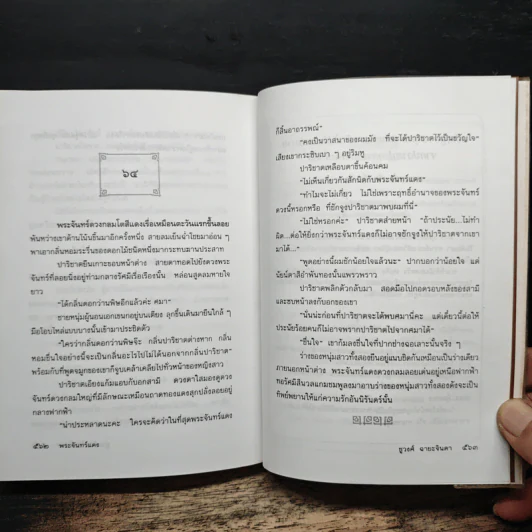 ๖๔
พระจันทร์ดวงกลมโตสีแดงเรื่อเหมือนตะวันแรกขึ้นลอย
พ้นหว่างเขาด้านโน้นขึ้นมาอีกครั้งหนึ่ง สายลมเย็นฉ่ำโชยมาอ่อน ๆ
พาเอากลิ่นหอมระรื่นของดอกไม้ชนิดหนึ่งมากระทบนาสาประสาท
ปาริชาตยืนเกาะขอบหน้าต่าง สายตาทอดไปยังดวงพระ
จันทร์ที่ลอยนิ่งอยู่ท่ามกลางรัศมีเรื่อเรืองนั้น หล่อนสูดลมหายใจ
ยาว
“ได้กลิ่นดอกว่านพิษอีกแล้วค่ะ คมา”
ชายหนุ่มผู้นอนเอกเขนกอยู่บนเตียง ลุกขึ้นเดินมายืนใกล้ ๆ
มือโอบไหล่แบบบางนั้นเข้ามาประชิดตัว
“ใครว่ากลิ่นดอกว่านพิษจ๊ะ กลิ่นปาริชาตต่างหาก กลิ่น
หอมชื่นใจอย่างนี้จะเป็นกลิ่นอะไรไปไม่ได้นอกจากกลิ่นปาริชาต”
พร้อมกับที่พูดจมูกของเขาก็จูบเคล้าเคลียไปทั่วหน้าของหญิงสาว
ปาริชาตเอียงแก้มแอบกับอกสามี ดวงตาใสมองดูดวง
จันทร์ดวงกลมใหญ่ที่มีลักษณะเหมือนถาดทองแดงสุกปลั่งลอยอยู่
กลางฟากฟ้า
“น่าประหลาดนะคะ ใครจะคิดว่าในที่สุดพระจันทร์แดง
๕๖๒ พระจันทร์แดง
ก็สิ้นอาถรรพณ์”
“คงเป็นวาสนาของผมมัง ที่จะได้ปาริชาตไว้เป็นขวัญใจ”
เสียงเขากระซิบเบา ๆ อยู่ริมหู
ปาริชาตเหลือบตาขึ้นค้อนคม
“ไม่เห็นเกี่ยวกันสักนิดกับพระจันทร์แดง”
“ทำไมจะไม่เกี่ยว ไม่ใช่เพราะฤทธิ์อำนาจของพระจันทร์
ดวงนี้หรอกหรือ ที่ชักจูงปาริชาตมาพบผมที่นี่”
“ไม่ใช่หรอกค่ะ” ปาริชาตส่ายหน้า “ถ้าประนัย...ไม่ทำ
ผิด...ต่อให้ยิ่งกว่าพระจันทร์แดงก็ไม่อาจชักจูงให้ปาริชาตจากเขา
มาได้...”
“พูดอย่างนี้ผมชักน้อยใจแล้วนะ” ปากบอกว่าน้อยใจ แต่
นัยน์ตาสีอำพันทองนั้นแพรวพราว
ปาริชาตพลิกตัวกลับมา สอดมือไปกอดรอบหลังของสามี
และซบหน้าลงกับอกของเขา
“นั่นน่ะก่อนที่ปาริชาตจะได้พบคมานี่คะ แต่เดี๋ยวนี้ต่อให้
ประนัยร้อยคนก็ไม่อาจพรากปาริชาตไปจากคมาได้”
“ชื่นใจ” เขาก้มลงชื่นใจที่ปากช่างฉอเลาะนั้นจริง ๆ
ร่างของหนุ่มสาวทั้งสองยืนอยู่แนบชิดกันเหมือนเป็นร่างเดียว
ภายนอกหน้าต่าง พระจันทร์แดงดวงกลมลอยเด่นอยู่เหนือฟากฟ้า
ทอรัศมีสีนวลแกมชมพูลงมาอาบร่างของหนุ่มสาวทั้งสองดังจะเป็น
ทิพย์พยานให้แก่ความรักอันนิรันดร์นั้น
ชูวงศ์ ฉายะจินดา ๕๖๓